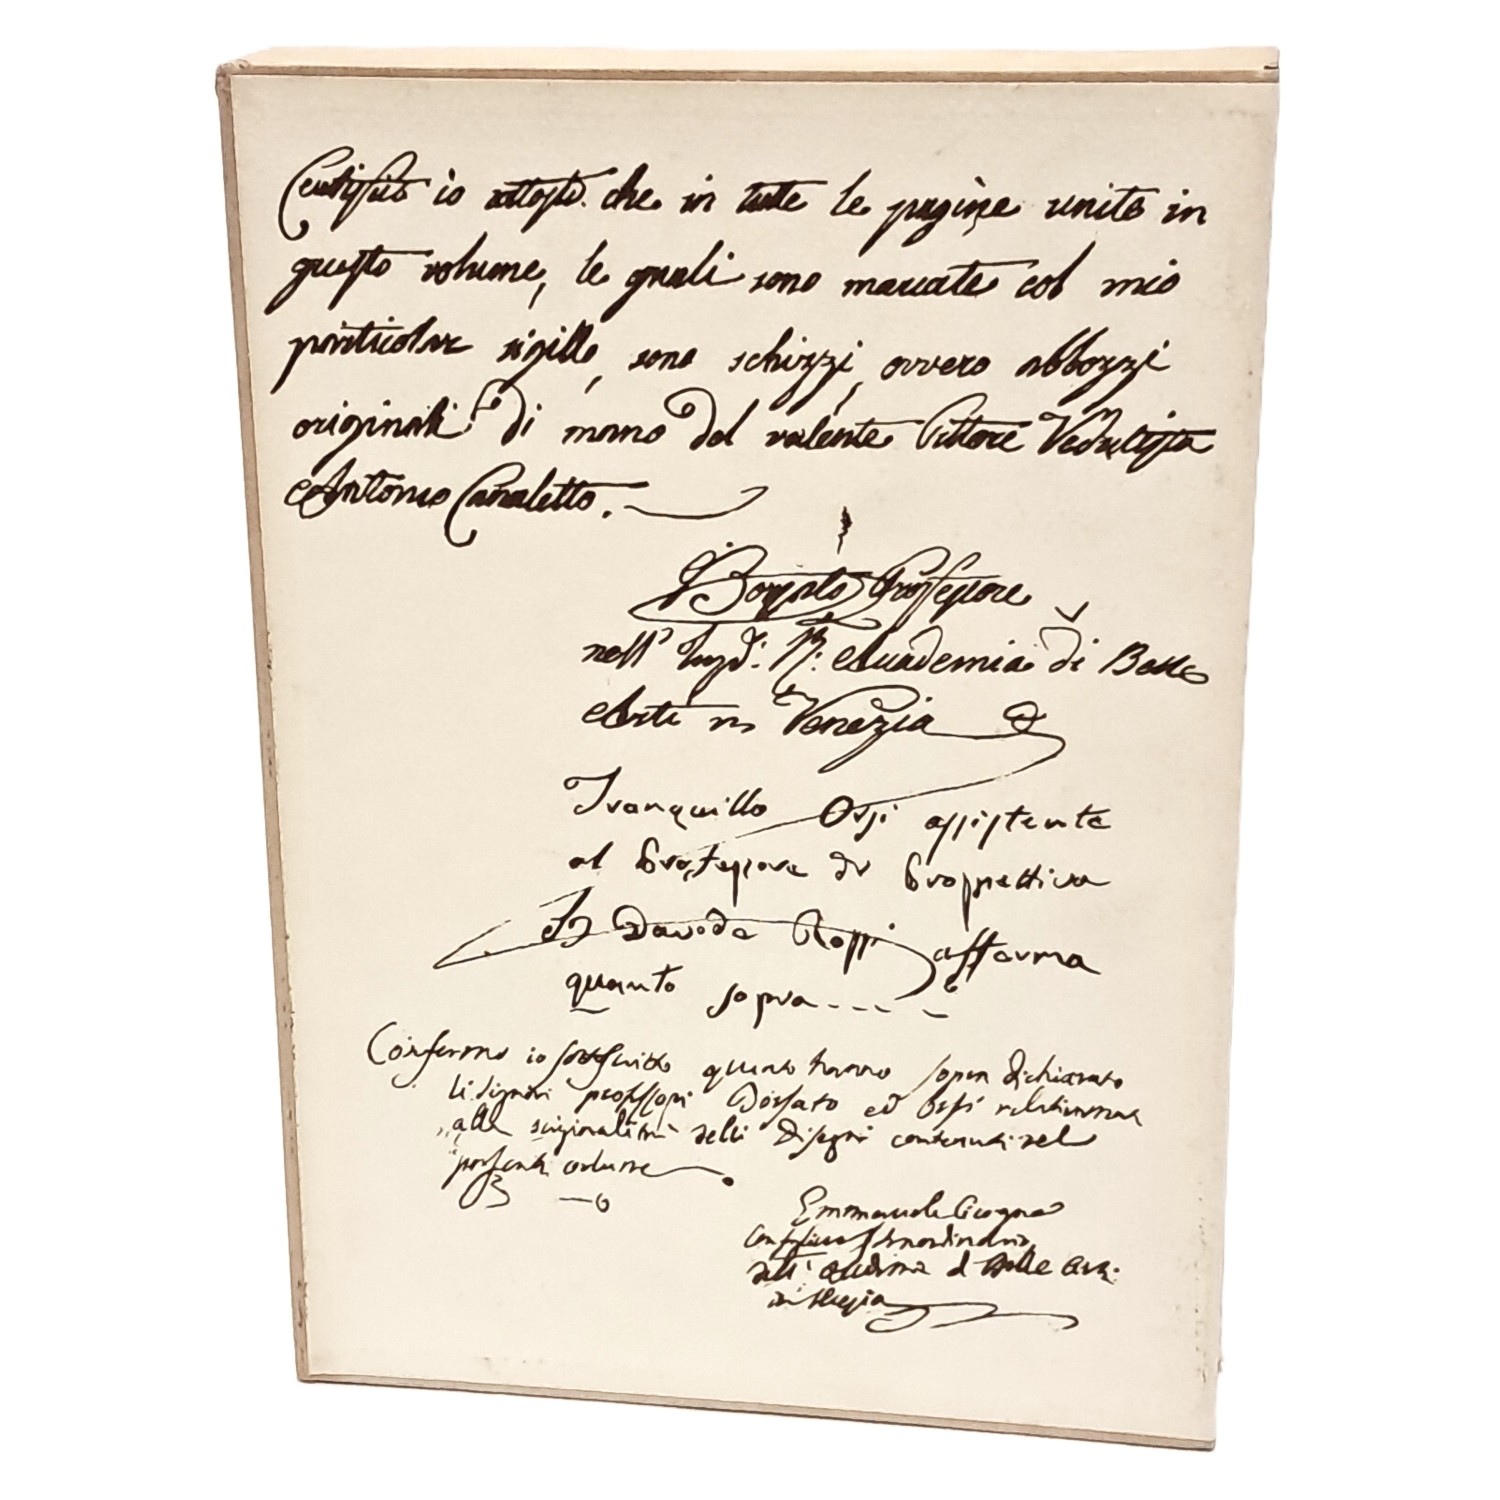 Certifico io sottosto. che in tutte le pagine unite in
questo volume, le quali sono marcate col mio
particolar sigillo, sono schizzi, ovvero abbozzi
originali di mano del valente Pittore Vedutista
Antonio Canaletto.
Borsato Professore
nell' I. R. Accademia di Belle
Arti in Venezia
Tranquillo Orsi assistente
al Professore di Prospettiva
Io Davide Rossi afferma
quanto sopra
Confermo io sottoscritto quanto hanno sopra dichiarato
li signori professori Borsato ed Orsi relativamente
alla originalità delli disegni contenuti nel
presente volume
Emmanuele Cicogna
Consigliere straordinario
dell' Accademia di Belle Arti
in Venezia